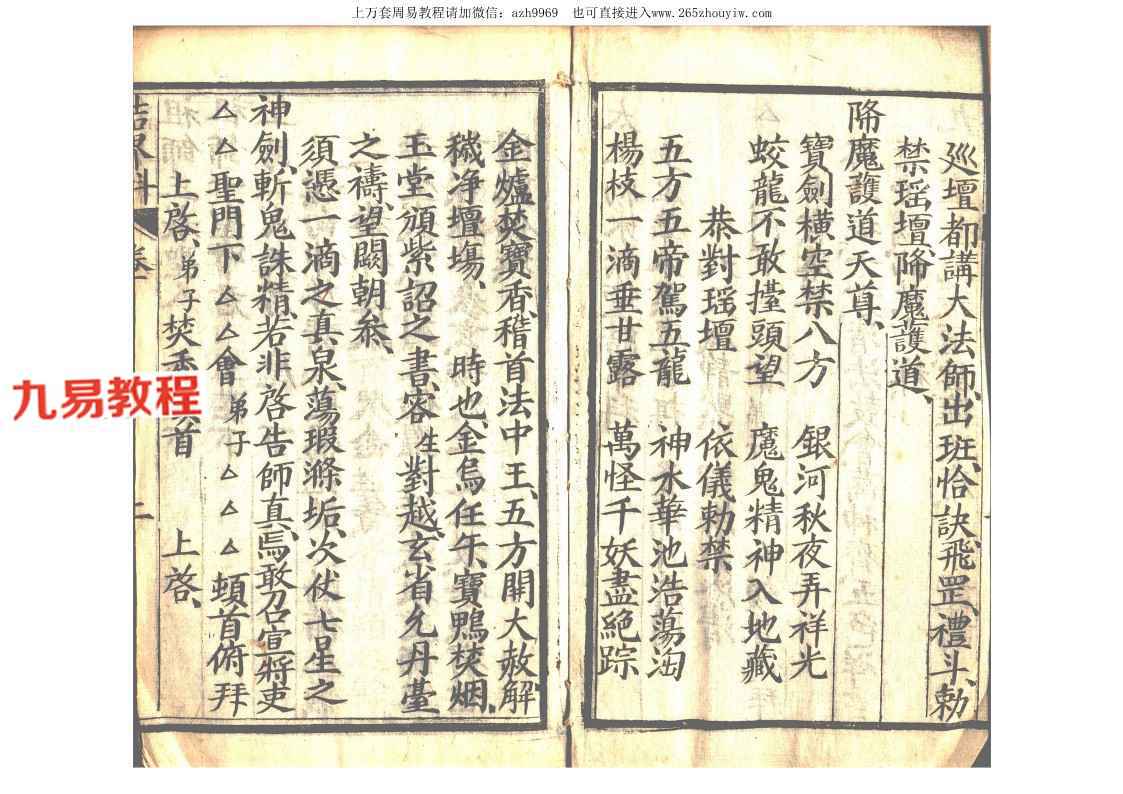 上万套周易教程请加微信：azh9969 也可直接进入www.265zhouyiw.com
巡壇都講大法師、出班、恰訣飛罡、禮斗、勅
禁瑶壇、降魔護道、
降魔護道天尊、
寶劍橫空禁八方 銀河秋夜弄祥光
蛟龍不敢擡頭望 魔鬼精神入地藏
恭對瑶壇 依儀勅禁
五方五帝駕五龍 神水華池浩蕩淘
楊枝一滴垂甘露 萬怪千妖盡絕踪
金爐焚寶香、稽首法中王、五方開大赦、解
穢净壇場、 時也、金烏任午、寶鴨焚烟、
玉堂頒紫詔之書、客生對越、玄省允丹臺
之禱、望闕朝叅、
須憑一滴之真泉、蕩瑕滌垢、次伏七星之
神劍、斬鬼誅精、若非啓告師真、焉敢召宣將吏
△△聖門下△△會弟子△△△頓首俯拜
上啓、弟子焚香 首 上啓、
科
二
九易教程